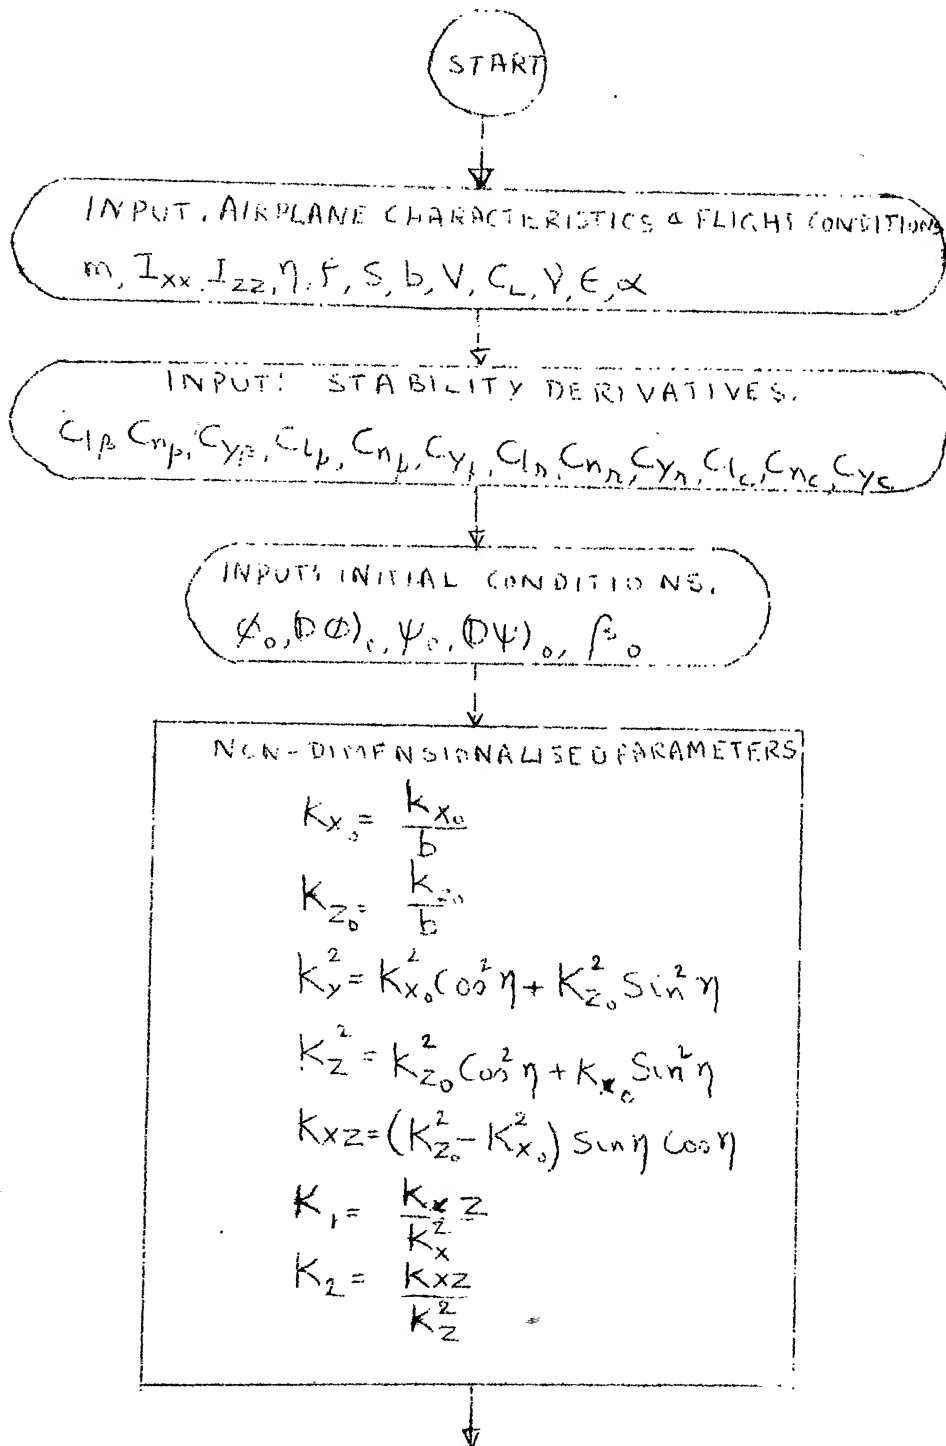 START
INPUT. AIRPLANE CHARACTERISTICS & FLIGHT CONDITIONS
m, I_xx, I_zz, η, ρ, S, b, V, C_L, γ, ε, α
INPUT: STABILITY DERIVATIVES.
C_lβ, C_nβ, C_yβ, C_lp, C_np, C_yp, C_lr, C_nr, C_yr, C_lc, C_nc, C_yc
INPUT: INITIAL CONDITIONS.
φ_0, (Dφ)_0, ψ_0, (Dψ)_0, β_0
NON-DIMENSIONALISED PARAMETERS
K_x0 = k_x0 / b
K_z0 = k_z0 / b
K_x^2 = K_x0^2 Cos^2 η + K_z0^2 Sin^2 η
K_z^2 = K_z0^2 Cos^2 η + K_x0 Sin^2 η
K_xz = (K_z0^2 - K_x0^2) Sin η Cos η
K_1 = K_xz / K_x^2
K_2 = K_xz / K_z^2